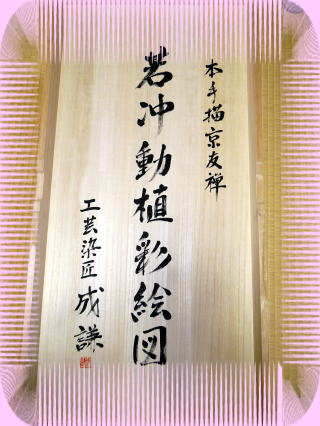 本手描京友禅
若冲動植彩絵図
工芸染匠 成謙